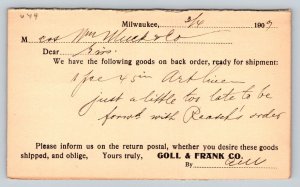 649
Milwaukee, 3/4 1909
M est Wm Mluck & Co
Dear Sirs.
We have the following goods on back order, ready for shipment:
1 pce 45 in Art linen
just a little too late to be
forw'd with Raasch's order
Please inform us on the return postal, whether you desire these goods
shipped, and oblige, Yours truly, GOLL & FRANK CO.
By